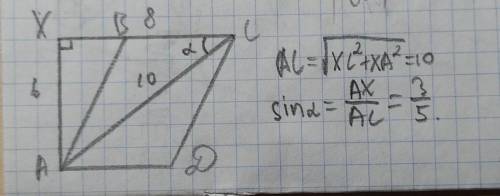 X B 8 C
α
6
10
A D
AC = √XC²+XA² = 10
sinα = AX/AC = 3/5.